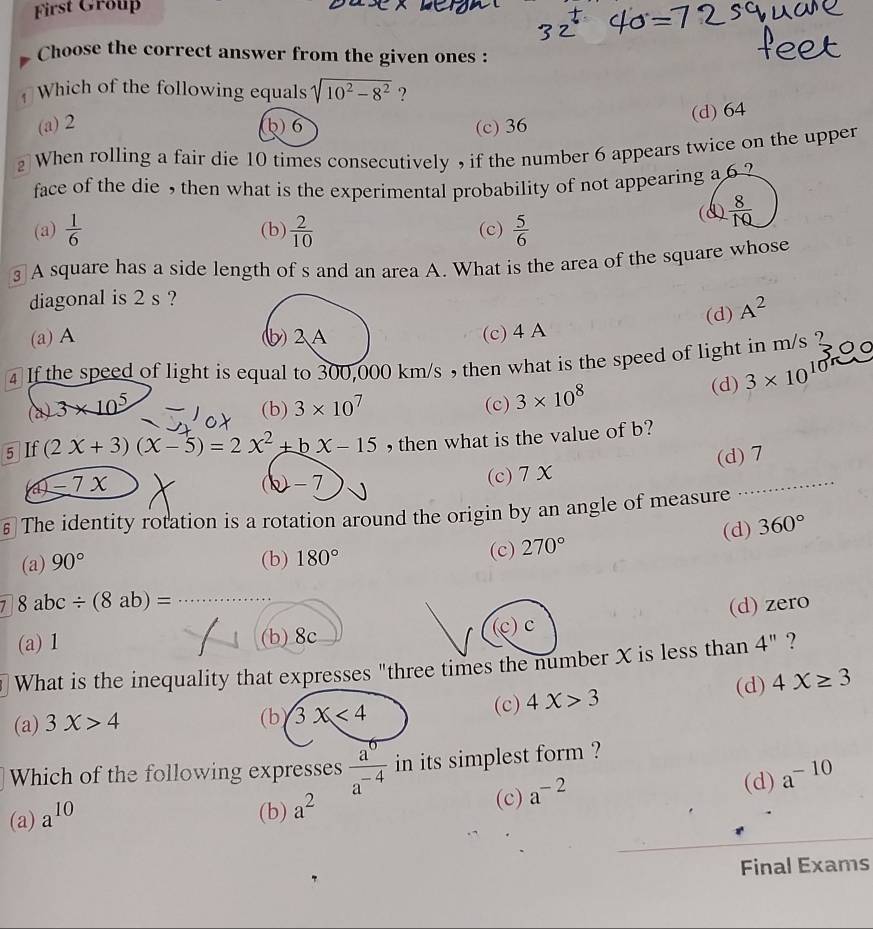 First Group
32+ 40=72 square
feet
Choose the correct answer from the given ones :
1 Which of the following equals √10² – 8² ?
(a) 2 (b) 6 (c) 36 (d) 64
2 When rolling a fair die 10 times consecutively , if the number 6 appears twice on the upper
face of the die , then what is the experimental probability of not appearing a 6 ?
(a) 1/6 (b) 2/10 (c) 5/6 (d) 8/10
3 A square has a side length of s and an area A. What is the area of the square whose
diagonal is 2 s ?
(a) A (b) 2 A (c) 4 A (d) A²
4 If the speed of light is equal to 300,000 km/s , then what is the speed of light in m/s ?
(a) 3 × 10⁵ (b) 3 × 10⁷ (c) 3 × 10⁸ (d) 3 × 10¹⁰
5 If (2 X + 3) (X – 5) = 2 X² + b X – 15 , then what is the value of b?
(a) – 7 X (b) – 7 (c) 7 X (d) 7
6 The identity rotation is a rotation around the origin by an angle of measure ..............
(a) 90° (b) 180° (c) 270° (d) 360°
7 8 abc ÷ (8 ab) = ...............
(a) 1 (b) 8c (c) c (d) zero
What is the inequality that expresses "three times the number X is less than 4" ?
(a) 3 X > 4 (b) 3 X < 4 (c) 4 X > 3 (d) 4 X ≥ 3
Which of the following expresses a⁶/a⁻⁴ in its simplest form ?
(a) a¹⁰ (b) a² (c) a⁻² (d) a⁻¹⁰
Final Exams